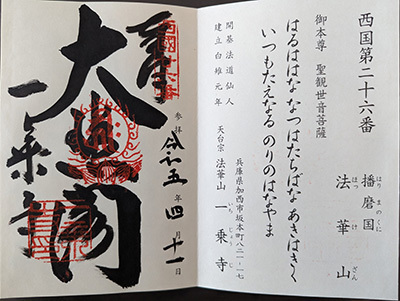 西国第二十六番
はりまのくに
播磨国
ほっけざん
法華山
御本尊 聖観世音菩薩
はるははな なつはたちばな あきはきく
いつもたえなる のりのはなやま
開基 法道仙人
建立 白雉元年
兵庫県加西市坂本町八二一-一七
天台宗 法華山 一乗寺
いちじょうじ
西國二十六番
大悲閣
一乗寺
参拝 令和五年 四月十一日